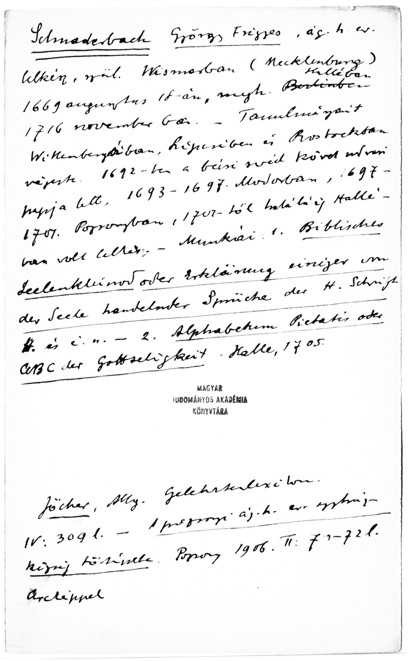 Schmaderbach György Frigyes, ág. h. ev.
lelkész, szül. Wismarban (Mecklenburg)
1669 augusztus 18-án, megh. Berlinben Halléban
1716 november ban. – Tanulmányait
Wittenbergában, Lipcsében és Rostockban
végezte. 1692-ben a bécsi svéd követ udvari
papja lett, 1693–1697. Modorban, 1697–
1701. Pozsonyban, 1701-től haláláig Hallé-
ban volt lelkész. – Munkái: 1. Biblisches
Seelenkleinod oder Erklärung einiger von
der Seele handelnder Sprüche der H. Schrift
H. és é. n. – 2. Alphabetum Pietatis oder
ABC der Gottseligkeit. Halle, 1705.
MAGYAR
TUDOMÁNYOS AKADÉMIA
KÖNYVTÁRA
Jöcher, Allg. Gelehrtenlexikon.
IV: 309 l. – A pozsonyi ág. h. ev. egyház-
község története. Pozsony 1906. II: 71–72 l.
Arcképpel